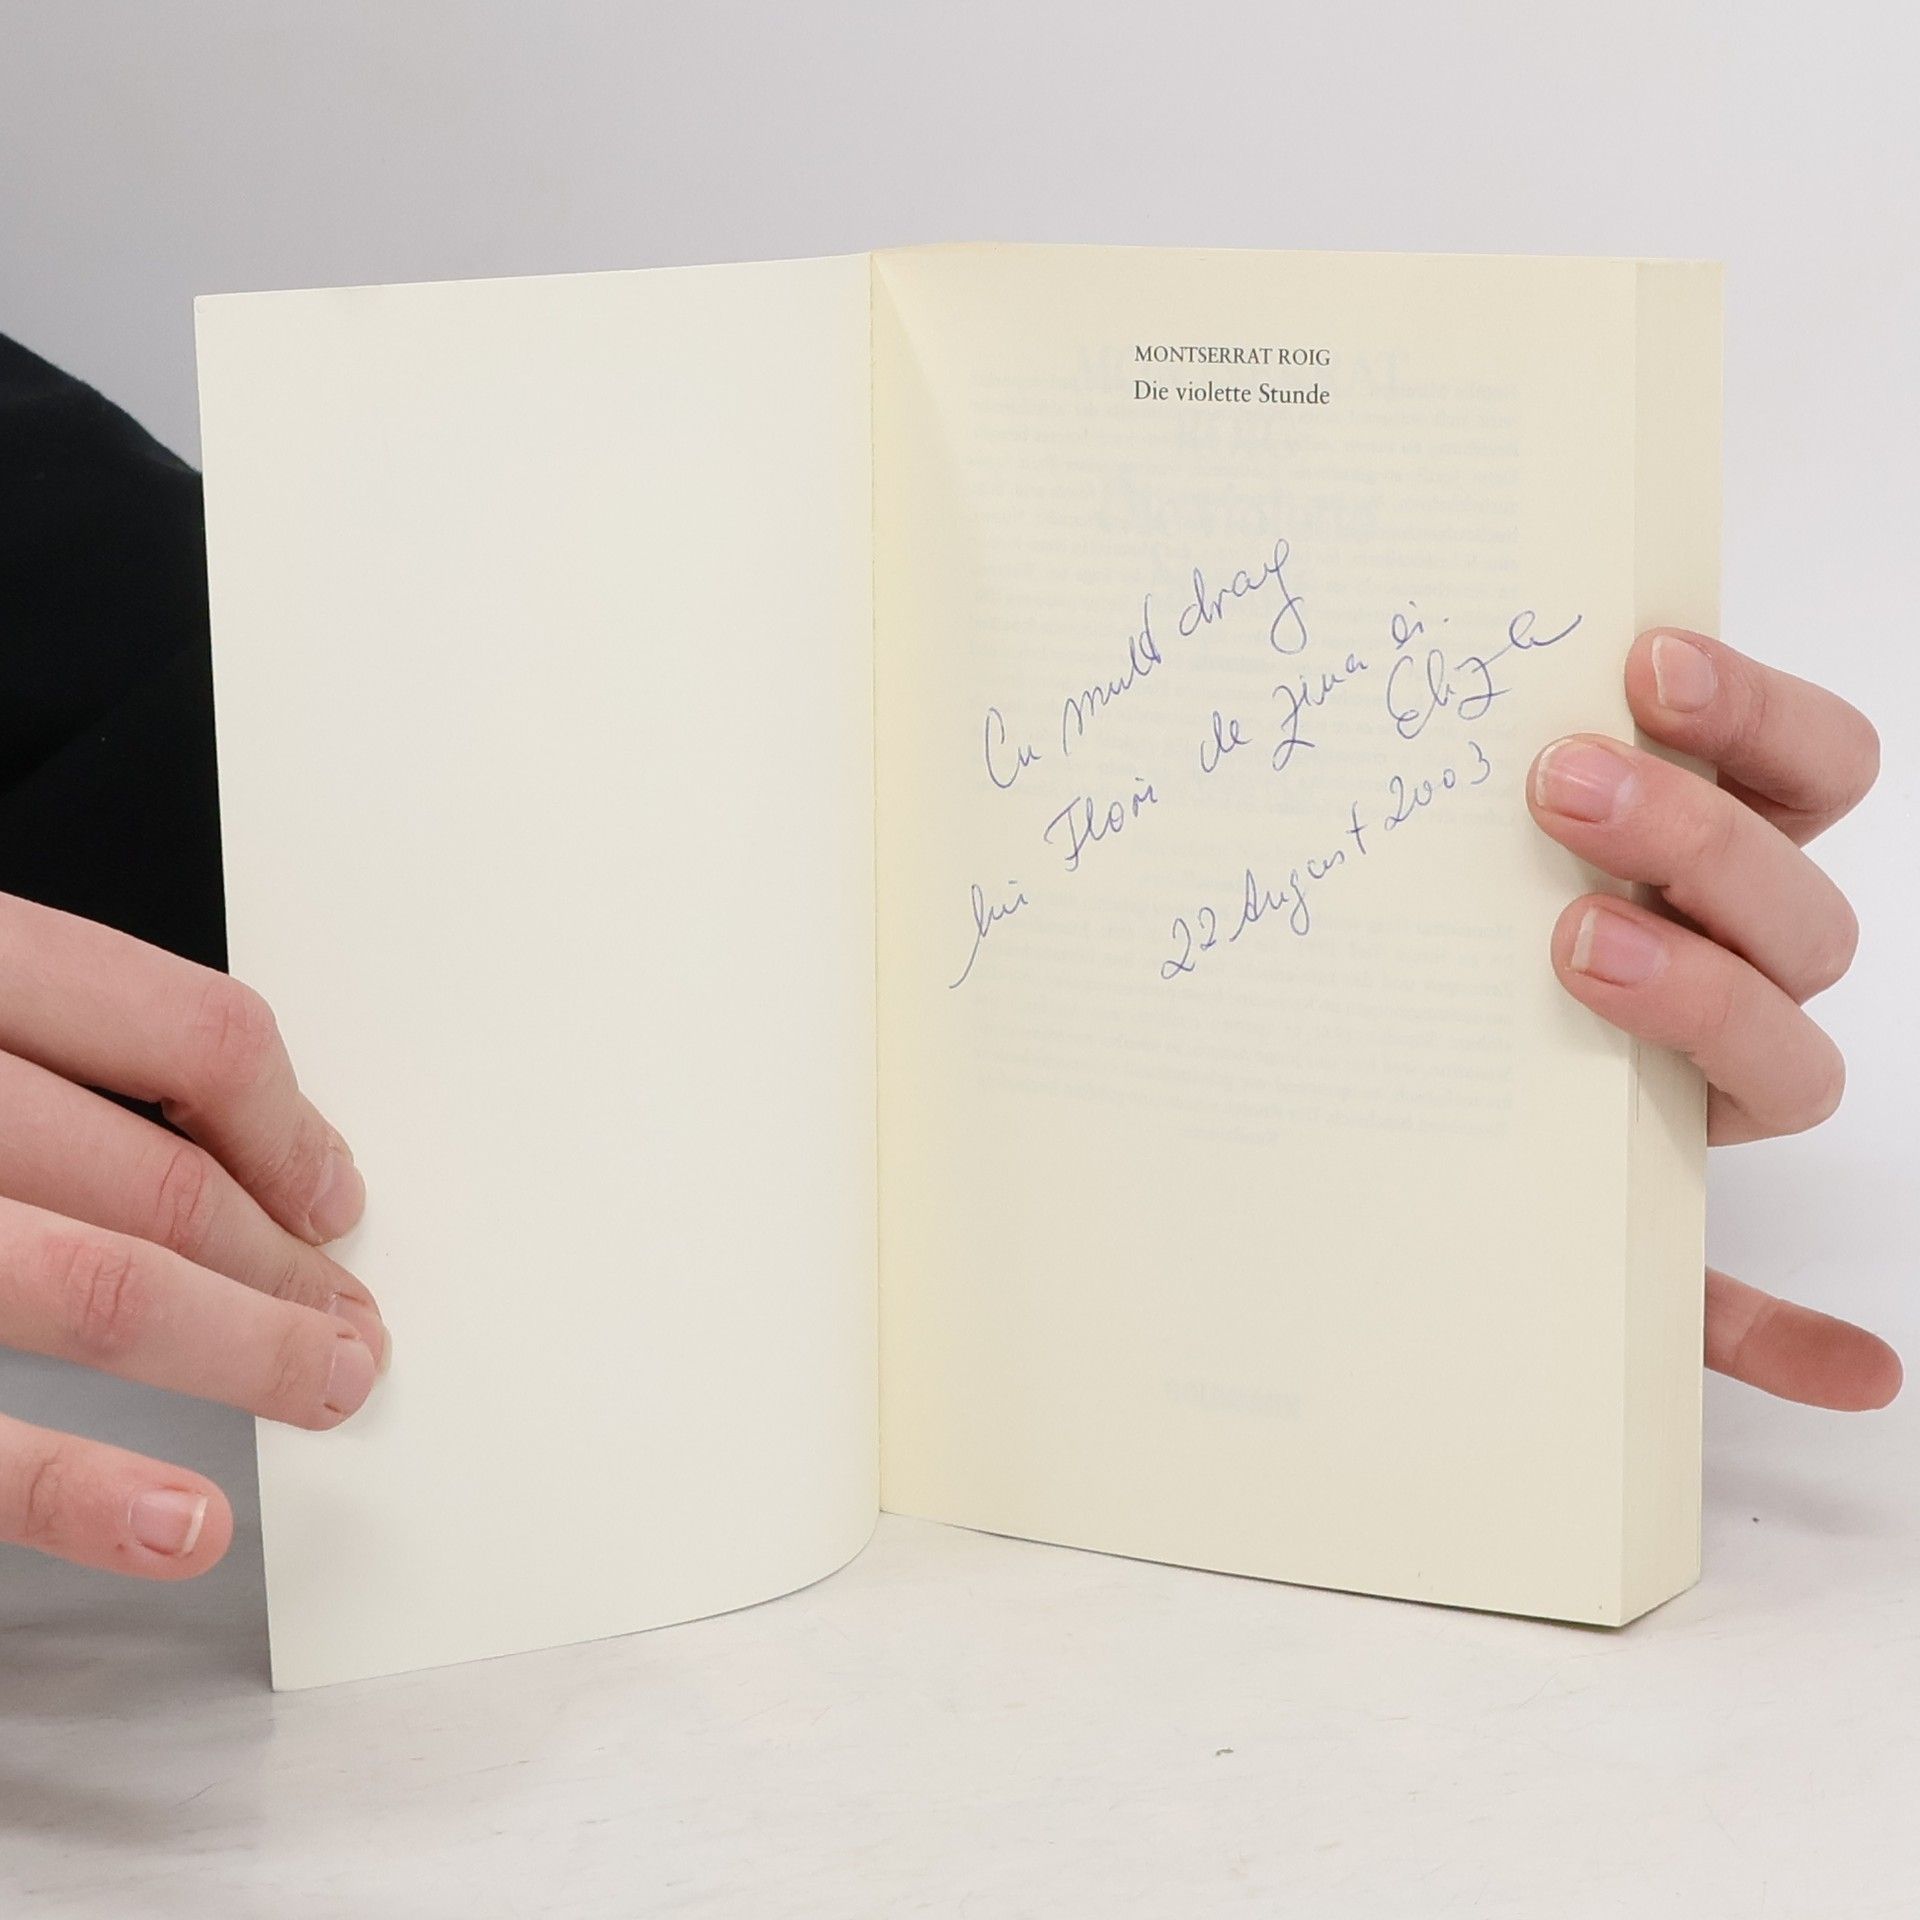 MONTSERRAT ROIG
Die violette Stunde
Cu mult drag
lui Flori de ziua ei.
Eliza
22 August 2003